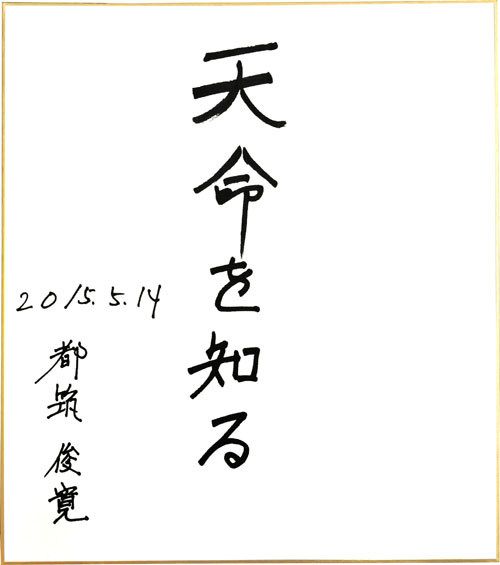 天命を知る
2015.5.14
都筑俊寛